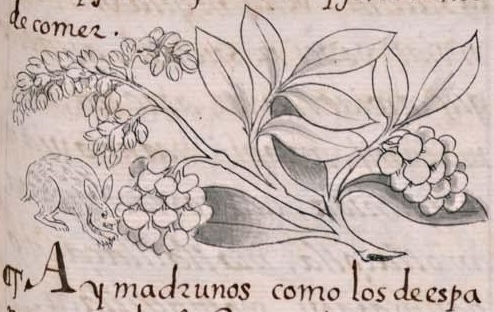 de comer.
¶. Ay madrunos como los de espa